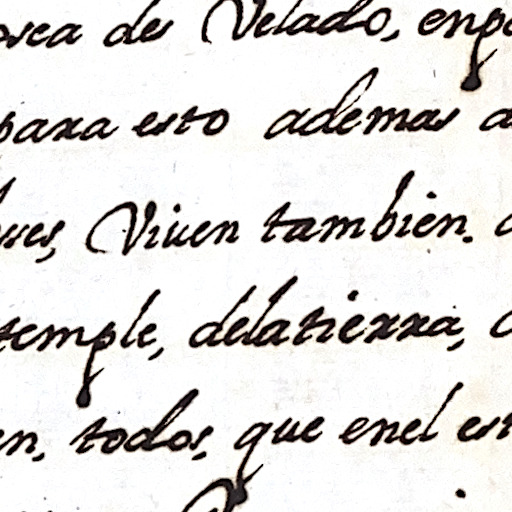 des Velado, enp
para esto ademas a
Viuen tambien.
temple, delatierra,
en, todos, que enel est